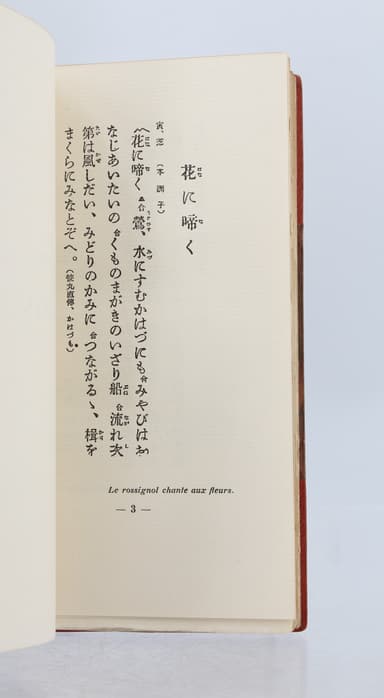 花に啼く
寅、芝（本調子）
〽花に啼く 合 鶯、水にすむかはづにも 合 みやびはお
なじあいたいの 合 くものまがきのいざり船 合 流れ次
第は風しだい、みどりのかみに 合 つながるゝ、楫を
まくらにみなとぞへ。（笹丸直傳、かはづも。）
Le rossignol chante aux fleurs.
— 3 —